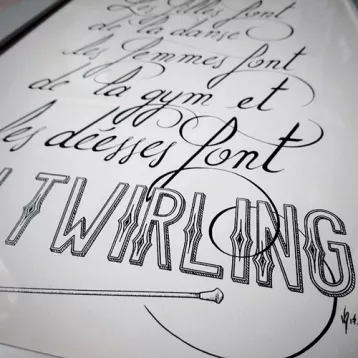 Les filles font
de la danse
les femmes font
de la gym et
les déesses font
TWIRLING